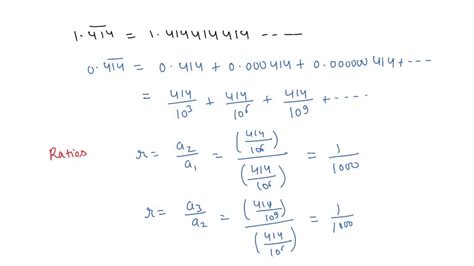 1.\overline{414} = 1.414414414 ----
0.\overline{414} = 0.414 + 0.000414 + 0.000000414 + ---
= 414/10³ + 414/10⁶ + 414/10⁹ + ----
Ratios r = a₂/a₁ = (414/10⁶)/(414/10⁶) = 1/1000
r = a₃/a₂ = (414/10⁹)/(414/10⁶) = 1/1000